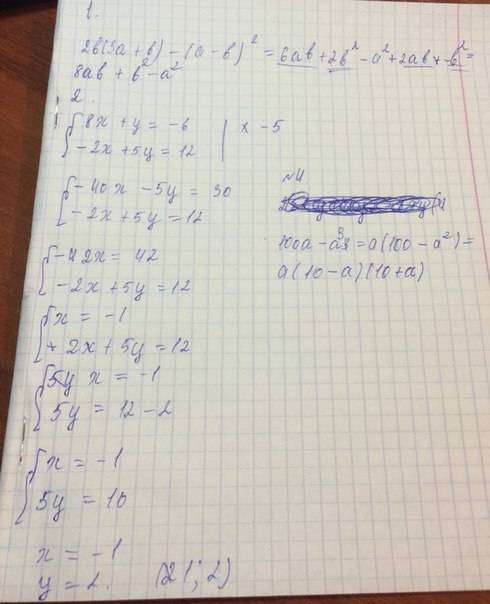 1.
2b(3a+b) - (a-b)² = 6ab+2b²-a²+2ab-b²=
8ab+b²-a²
2.
{8x+y=-6 | x -5
{-2x+5y=12
{-40x-5y=30
{-2x+5y=12
{-42x=42
{-2x+5y=12
{x=-1
{+2x+5y=12
{5y x=-1
{5y=12-2
{x=-1
{5y=10
x=-1
y=2.
(-1; 2)
№4
100a-a³=a(100-a²)=
a(10-a)(10+a)